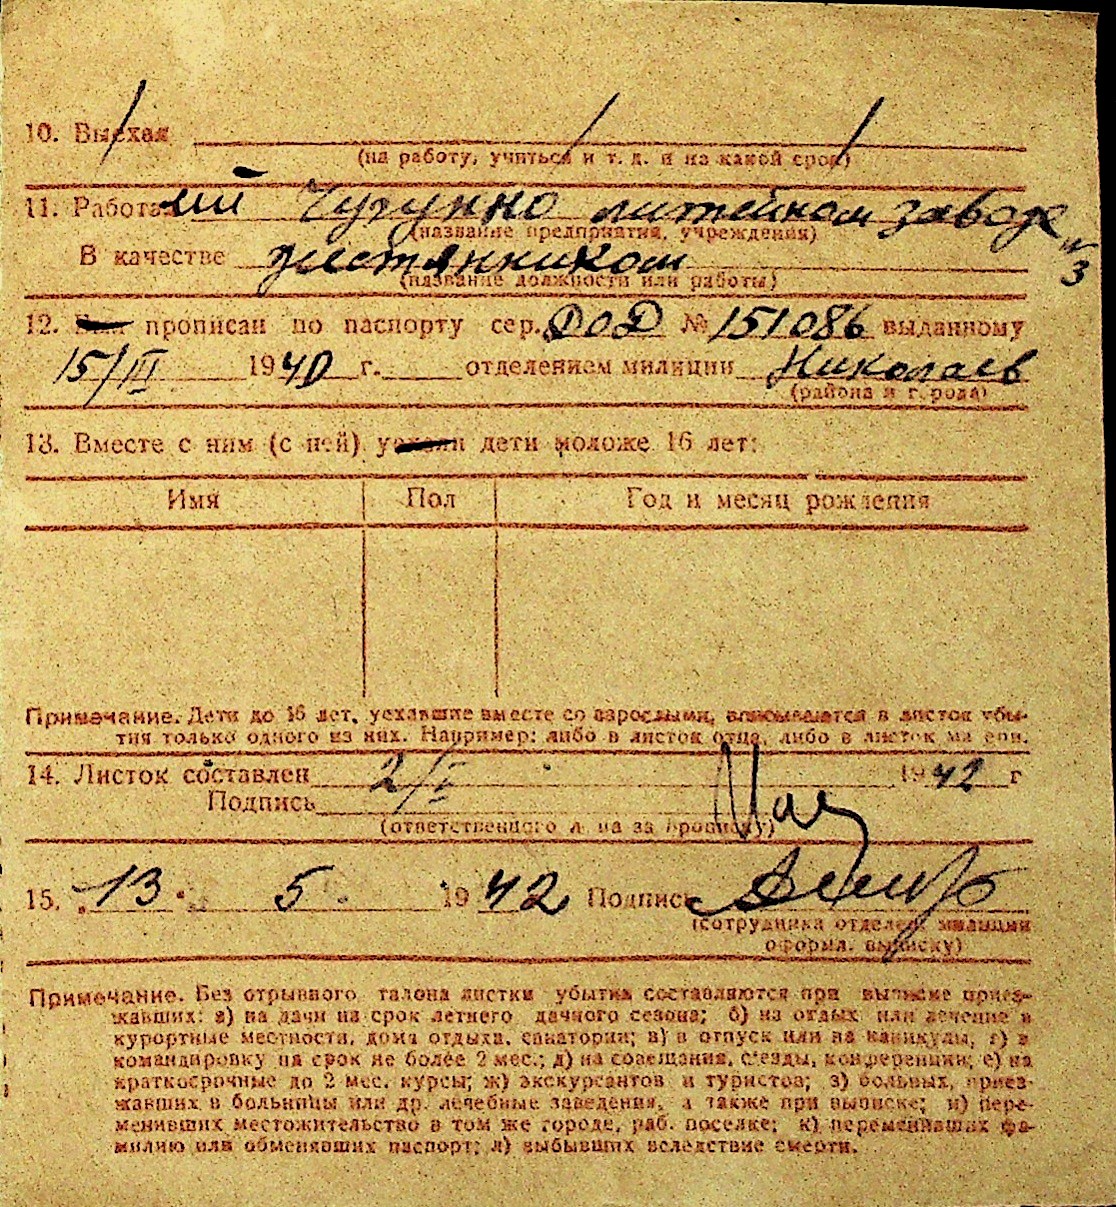 10. Выехал
(на работу, учиться и т. д. и на какой срок)
11. Работа ий Чугунно литейном заводе
(название предприятия, учреждения) N 3
В качестве жестянником
(название должности или работы)
12. прописан по паспорту сер. ДОД № 151086 выданному
15/III 1940 г. отделением милиции Николаев
(района и города)
13. Вместе с ним (с ней) уехали дети моложе 16 лет:
Имя Пол Год и месяц рождения
Примечание. Дети до 16 лет, уехавшие вместе со взрослыми, вписываются в листок убы-
тия только одного из них. Например: либо в листок отца, либо в листок матери.
14. Листок составлен 2/I 1942 г
Подпись
(ответственного лица за прописку)
15. 13. 5. 1942 Подпись
(сотрудника отделен. милиции
оформл. выписку)
Примечание. Без отрывного талона листки убытия составляются при выписке приез-
жавших: а) на дачи на срок летнего дачного сезона; б) на отдых или лечение в
курортные местности, дома отдыха, санатории; в) в отпуск или на каникулы; г) в
командировку на срок не более 2 мес.; д) на совещания, с'езды, конференции; е) на
краткосрочные до 2 мес. курсы; ж) экскурсантов и туристов; з) больных, приез-
жавших в больницы или др. лечебные заведения, а также при выписке; и) пере-
менивших местожительство в том же городе, раб. поселке; к) переменивших фа-
милию или обменявших паспорт; л) выбывших вследствие смерти.